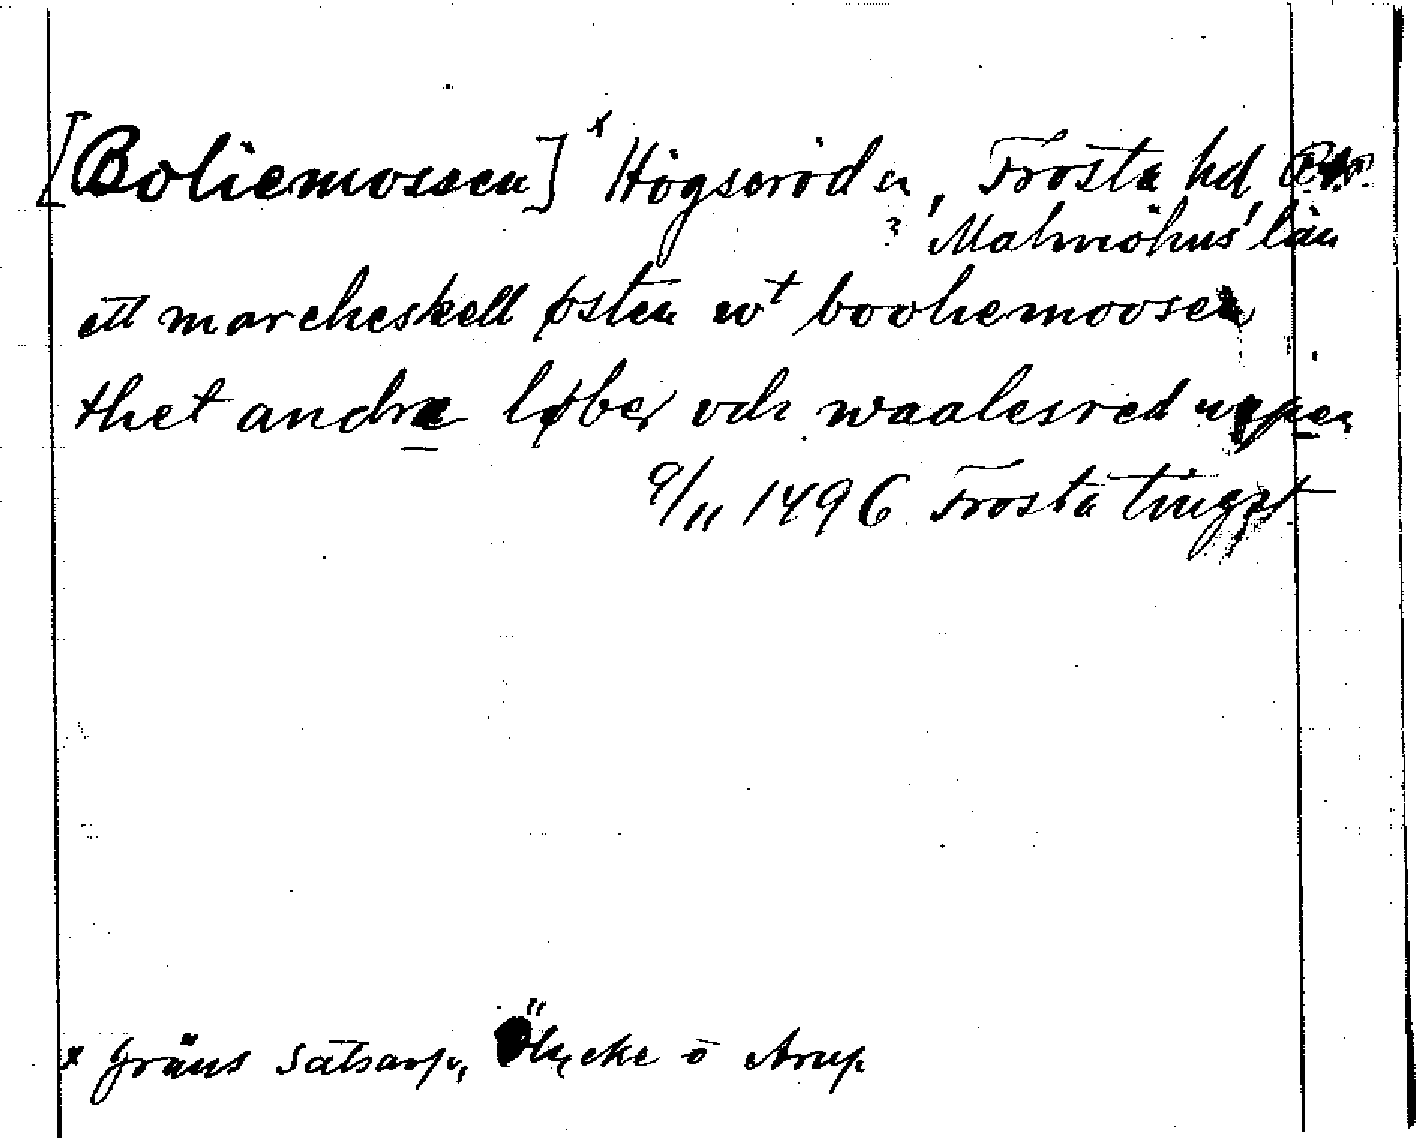 [Boliemossen] x Högseröd sn, Frosta hd,
? Malmöhus län
ett marcheskell østen wt booliemoosen
thet andræ løber vdi waalesred
9/11 1496 Frosta tingst
x gräns Sätsarp, Ölycke o Arup